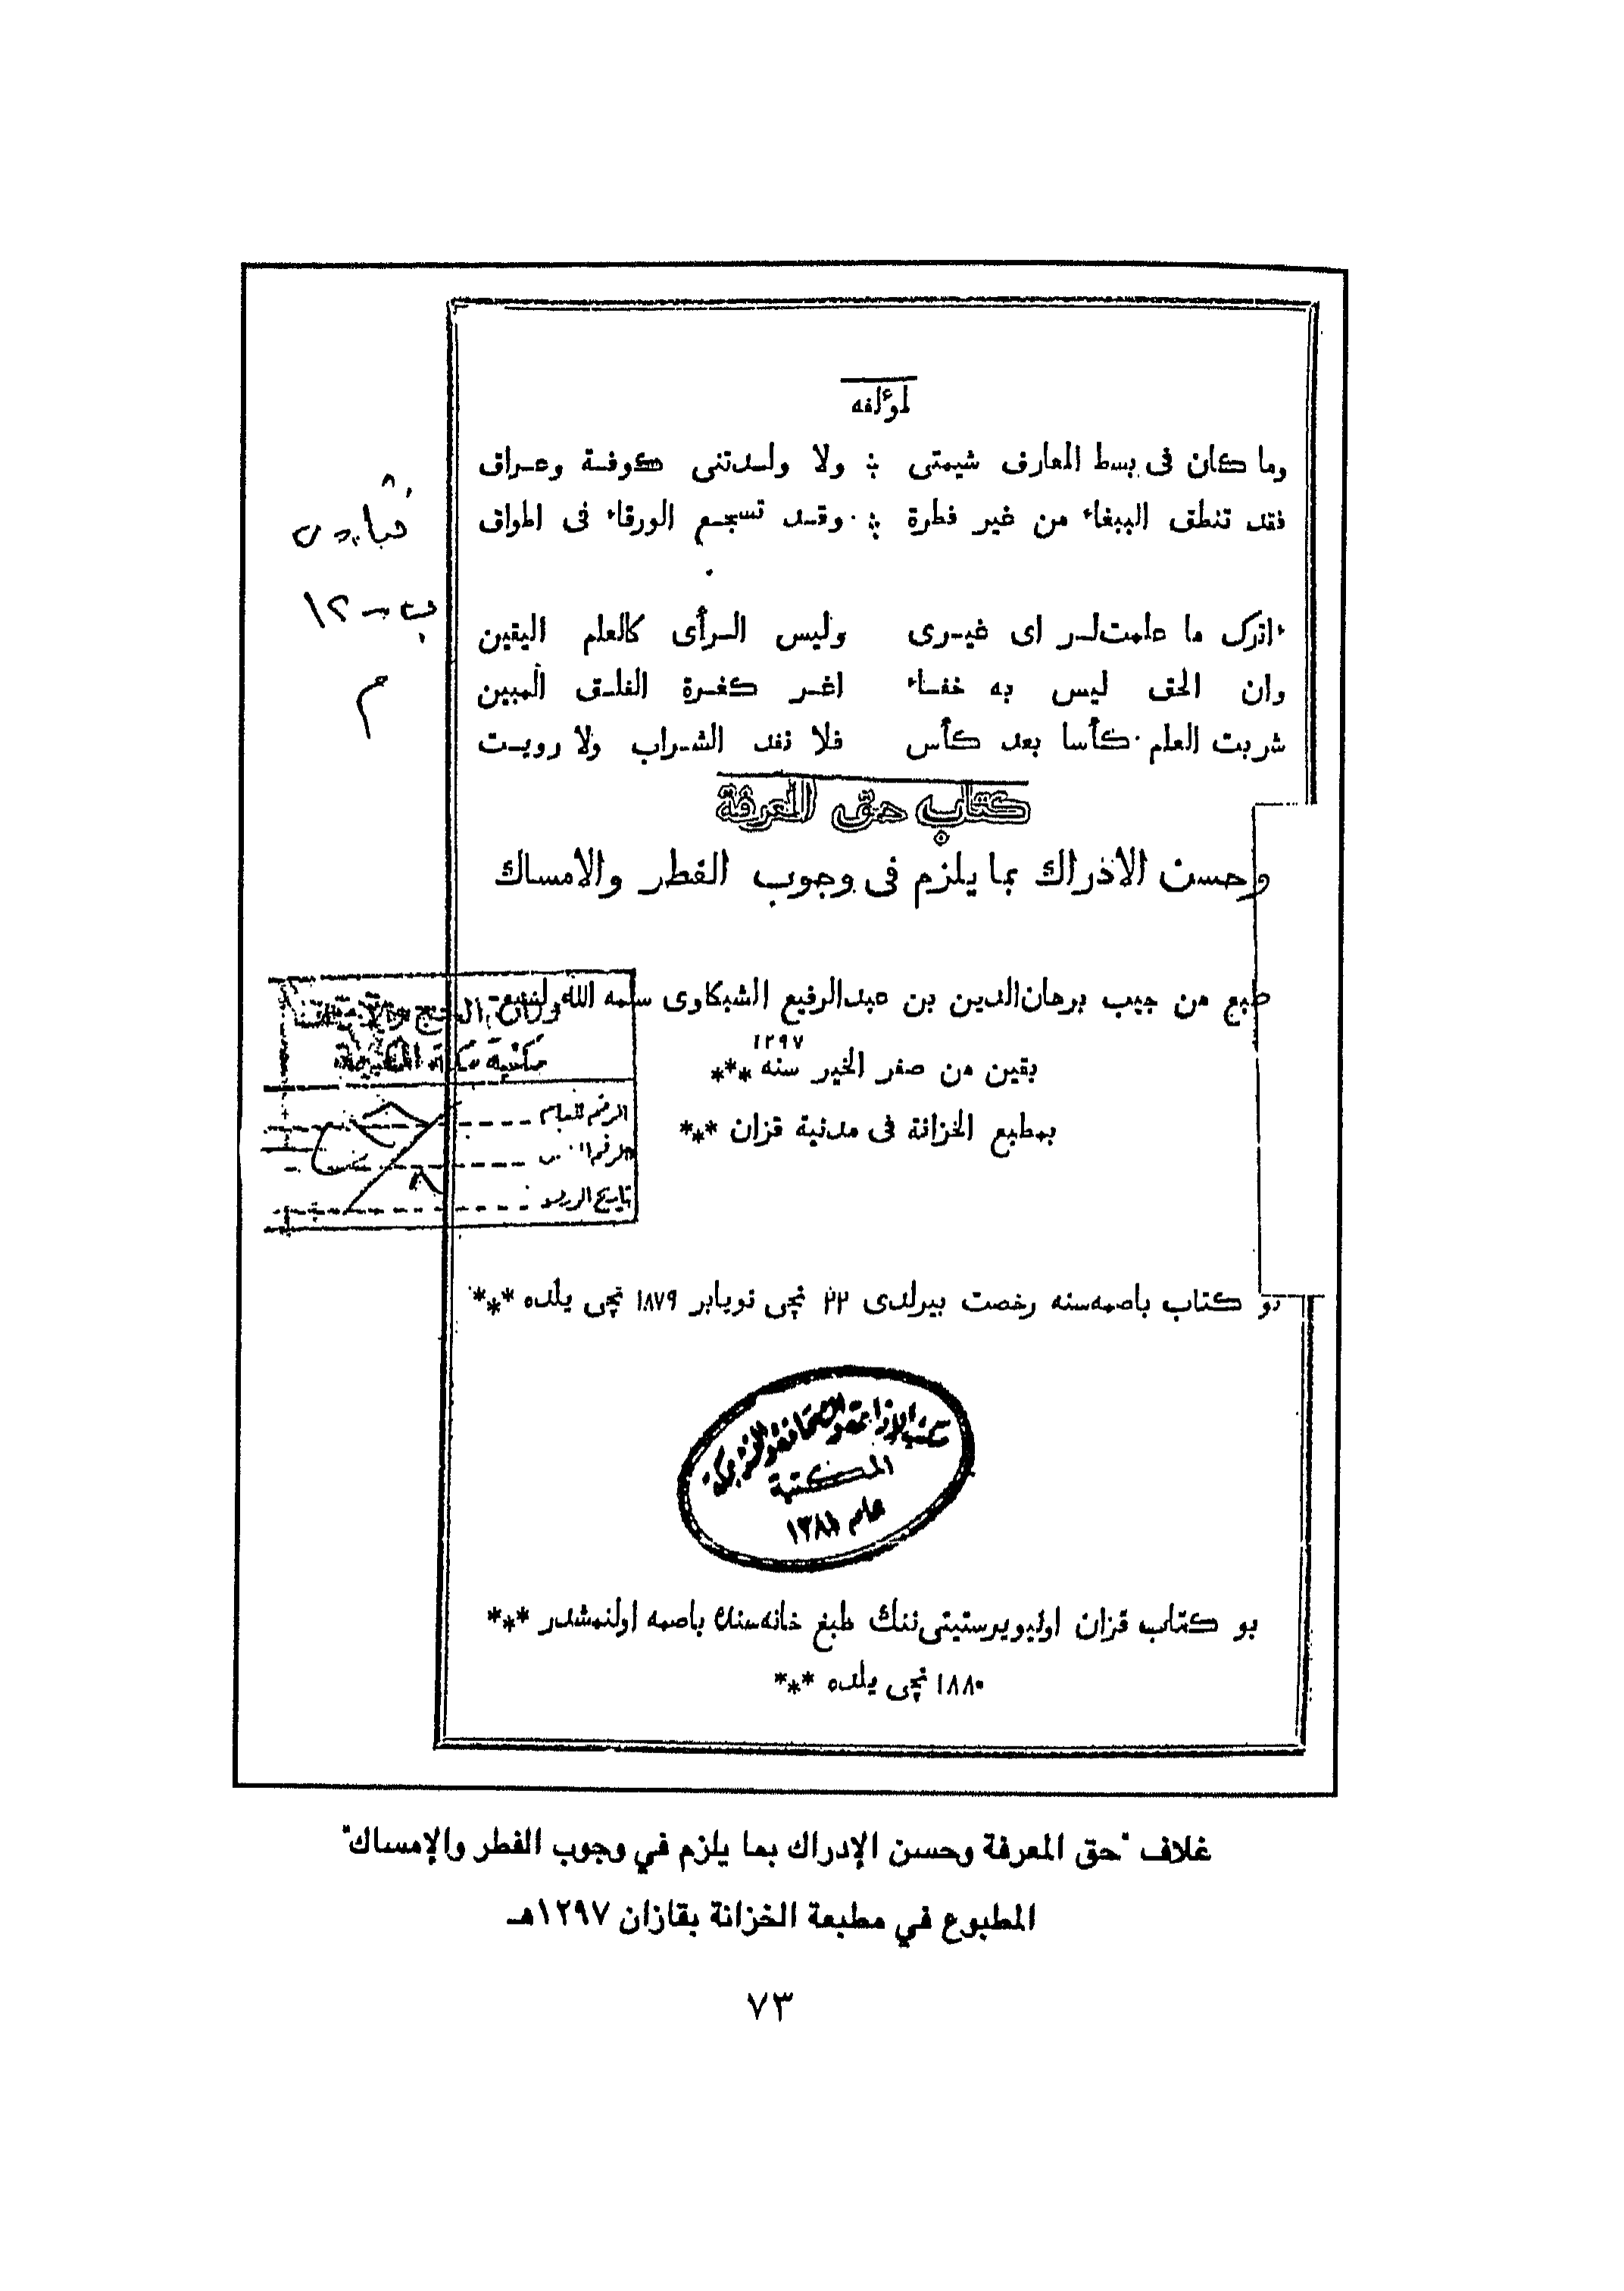 لمؤلفه
وما كان فى بسط المعارف شيمتى ولا ولدتنى كوفة وعراق
فقد تنطق الببغاء من غير فطرة وقد تسجع الورقاء فى اطواق
اترك ما علمت لراى غيرى وليس الرأى كالعلم اليقين
وان الحق ليس به خفاء اغر كغرة الفلق المبين
شربت العلم كأسا بعد كأس فلا نفد الشراب ولا رويت
كتاب حق المعرفة
وحسن الاذراك بما يلزم فى وجوب الفطر والامساك
طبع من جيب برهان‌الدين بن عبدالرفيع الشبكاوى سلمه الله لسبع
بقين من صفر الخير سنه ١٢٩٧ ***
بمطبع الخزانة فى مدنية قزان ***
مكتبة مكة المكرمة
الرقم العام
الرقم
تاريخ
بو كتاب باصمه‌سنه رخصت بيرلدى ٢٢ نچى نويابر ١٨٧٩ نچى يلده ***
المكتبة
عام ١٣٨٨
بو كتاب قزان اونيويرستيتى‌ننك طبع خانه‌سنده باصمه اولنمشدر ***
١٨٨٠ نچى يلده ***
غلاف "حق المعرفة وحسن الإدراك بما يلزم في وجوب الفطر والإمساك"
المطبوع في مطبعة الخزانة بقازان ١٢٩٧هـ
٧٣